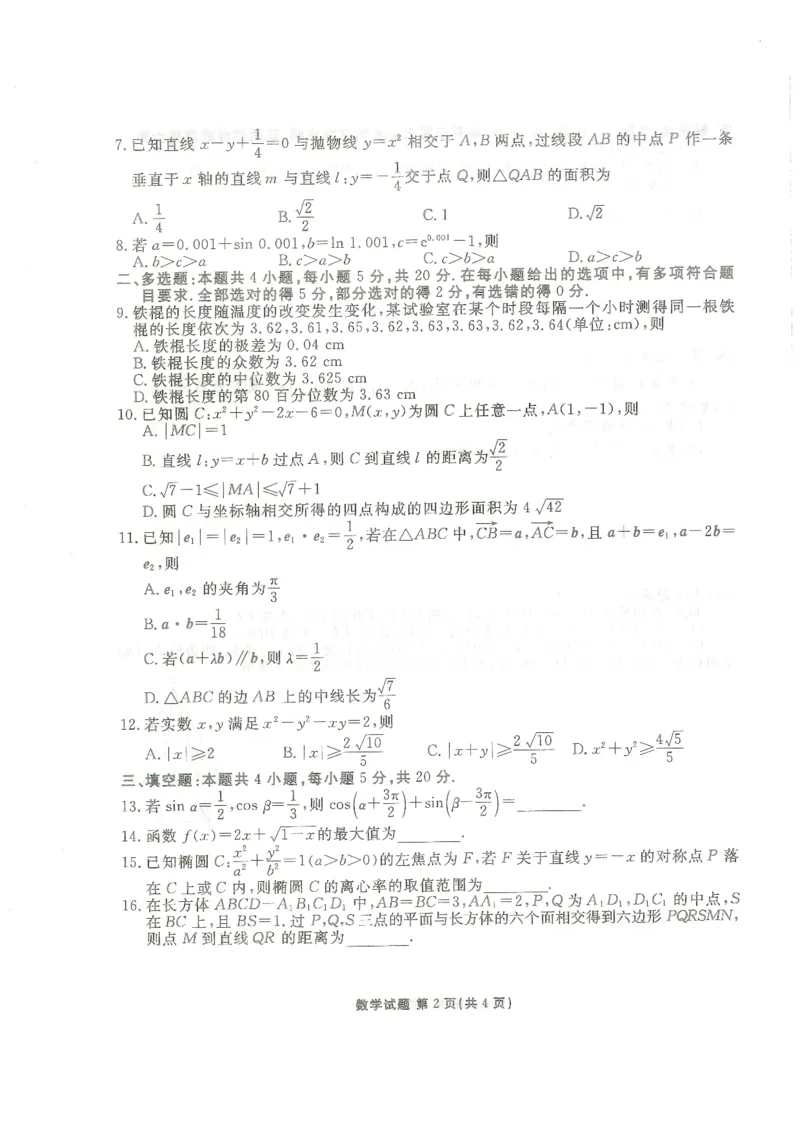 7.已知直线 x-y+1/4=0 与抛物线 y=x² 相交于 A,B 两点,过线段 AB 的中点 P 作一条
垂直于 x 轴的直线 m 与直线 l:y=-1/4交于点 Q,则△QAB 的面积为
A.1/4 B.√2/2 C.1 D.√2
8.若 a=0.001+sin 0.001,b=ln 1.001,c=e^0.001-1,则
A.b>c>a B.c>a>b C.c>b>a D.a>c>b
二、多选题:本题共 4 小题,每小题 5 分,共 20 分.在每小题给出的选项中,有多项符合题
目要求.全部选对的得 5 分,部分选对的得 2 分,有选错的得 0 分.
9.铁棍的长度随温度的改变发生变化,某试验室在某个时段每隔一个小时测得同一根铁
棍的长度依次为 3.62,3.61,3.65,3.62,3.63,3.63,3.62,3.64(单位:cm),则
A.铁棍长度的极差为 0.04 cm
B.铁棍长度的众数为 3.62 cm
C.铁棍长度的中位数为 3.625 cm
D.铁棍长度的第 80 百分位数为 3.63 cm
10.已知圆 C:x²+y²-2x-6=0,M(x,y)为圆 C 上任意一点,A(1,-1),则
A.|MC|=1
B.直线 l:y=x+b 过点 A,则 C 到直线 l 的距离为√2/2
C.√7-1≤|MA|≤√7+1
D.圆 C 与坐标轴相交所得的四点构成的四边形面积为 4√42
11.已知|e₁|=|e₂|=1,e₁·e₂=1/2,若在△ABC 中,CB=a,AC=b,且 a+b=e₁,a-2b=
e₂,则
A.e₁,e₂ 的夹角为π/3
B.a·b=1/18
C.若(a+λb)∥b,则 λ=1/2
D.△ABC 的边 AB 上的中线长为√7/6
12.若实数 x,y 满足 x²-y²-xy=2,则
A.|x|≥2 B.|x|≥2√10/5 C.|x+y|≥2√10/5 D.x²+y²≥4√5/5
三、填空题:本题共 4 小题,每小题 5 分,共 20 分.
13.若 sin α=1/2,cos β=1/3,则 cos(α+3π/2)+sin(β-3π/2)=________.
14.函数 f(x)=2x+√1-x的最大值为________.
15.已知椭圆 C:x²/a²+y²/b²=1(a>b>0)的左焦点为 F,若 F 关于直线 y=-x 的对称点 P 落
在 C 上或 C 内,则椭圆 C 的离心率的取值范围为________.
16.在长方体 ABCD-A₁B₁C₁D₁ 中,AB=BC=3,AA₁=2,P,Q 为 A₁D₁,D₁C₁ 的中点,S
在 BC 上,且 BS=1.过 P,Q,S 三点的平面与长方体的六个面相交得到六边形 PQRSMN,
则点 M 到直线 QR 的距离为________.
数学试题 第 2 页(共 4 页)